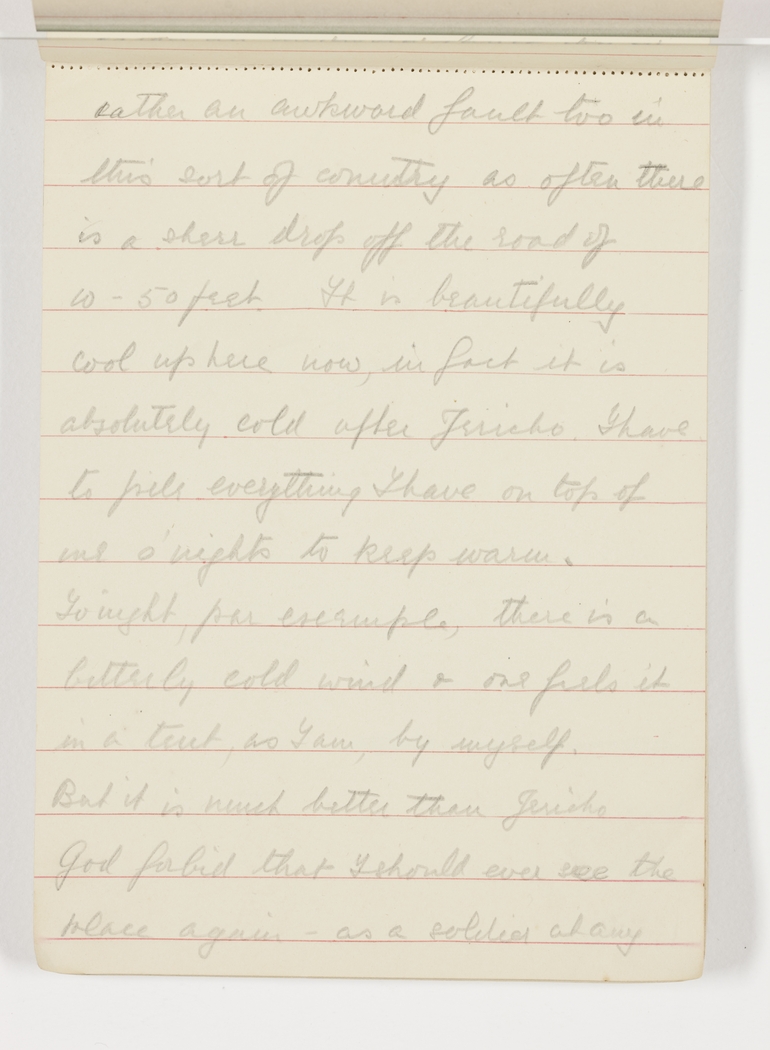 rather an awkward fault too in
this sort of country as often there
is a sheer drop off the road of
10 - 50 feet. It is beautifully
cool up here now, in fact it is
absolutely cold after Jericho. I have
to pile everything I have on top of
me o'nights to keep warm.
To'night, par example, there is a
bitterly cold wind & one feels it
in a tent, as I am, by myself.
But it is much better than Jericho
God forbid that I should ever see the
place again - as a soldier at any